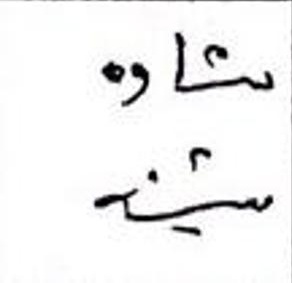 شاوه
شینه